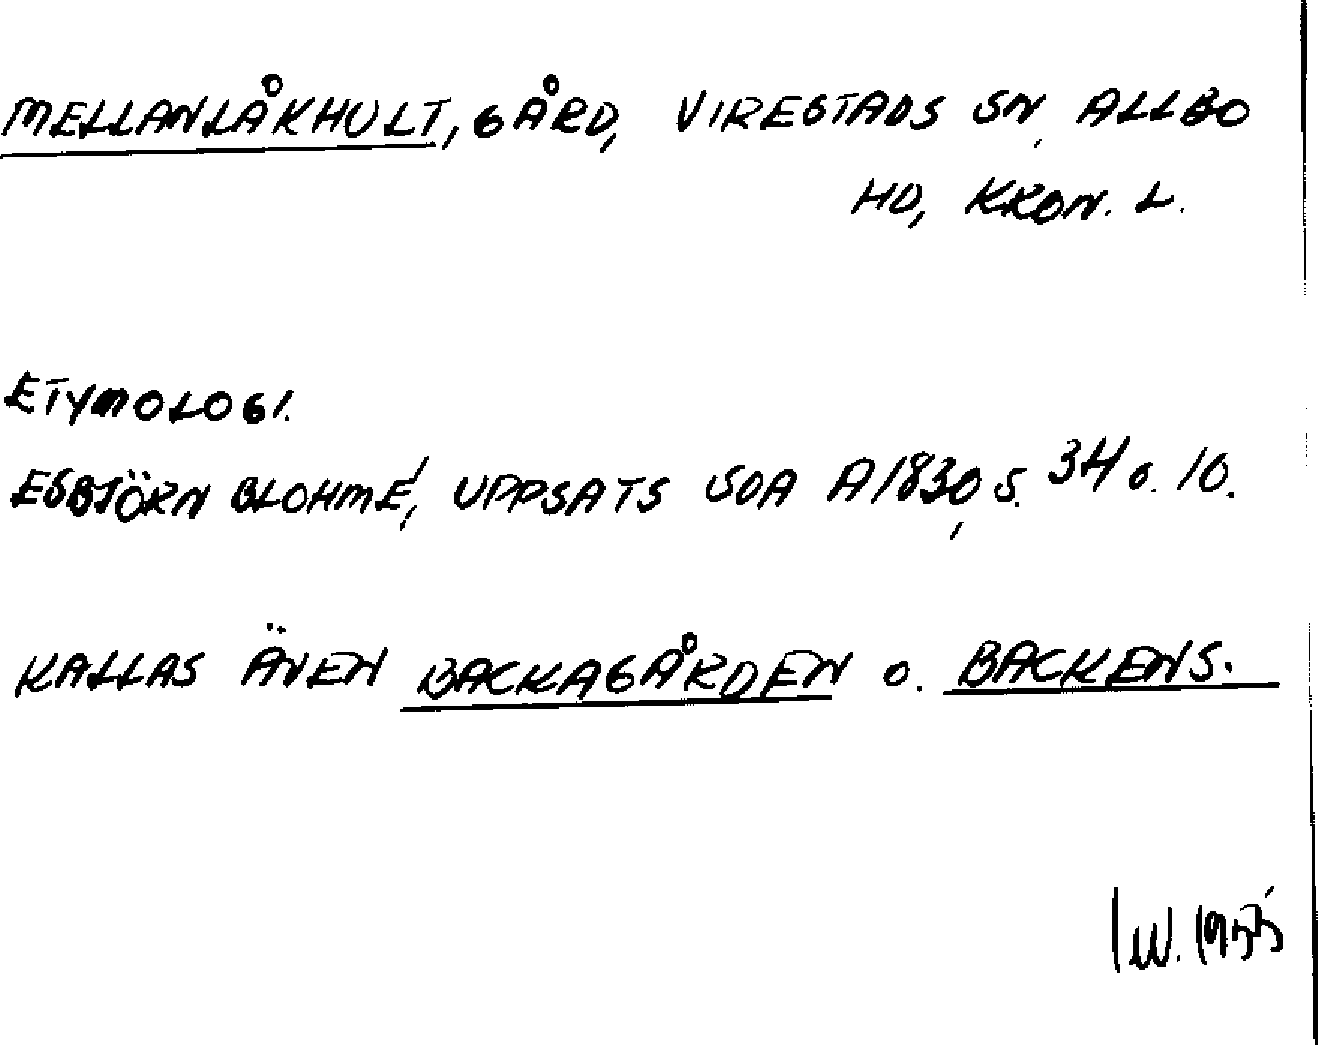 MELLANLÅKHULT, GÅRD, VIRESTADS SN, ALLBO
HD, KRON. L.
ETYMOLOGI.
ESBJÖRN BLOHMÉ, UPPSATS SOA A1830, S. 34 o. 10.
KALLAS ÄVEN BACKAGÅRDEN o. BACKENS.
IW. 1955